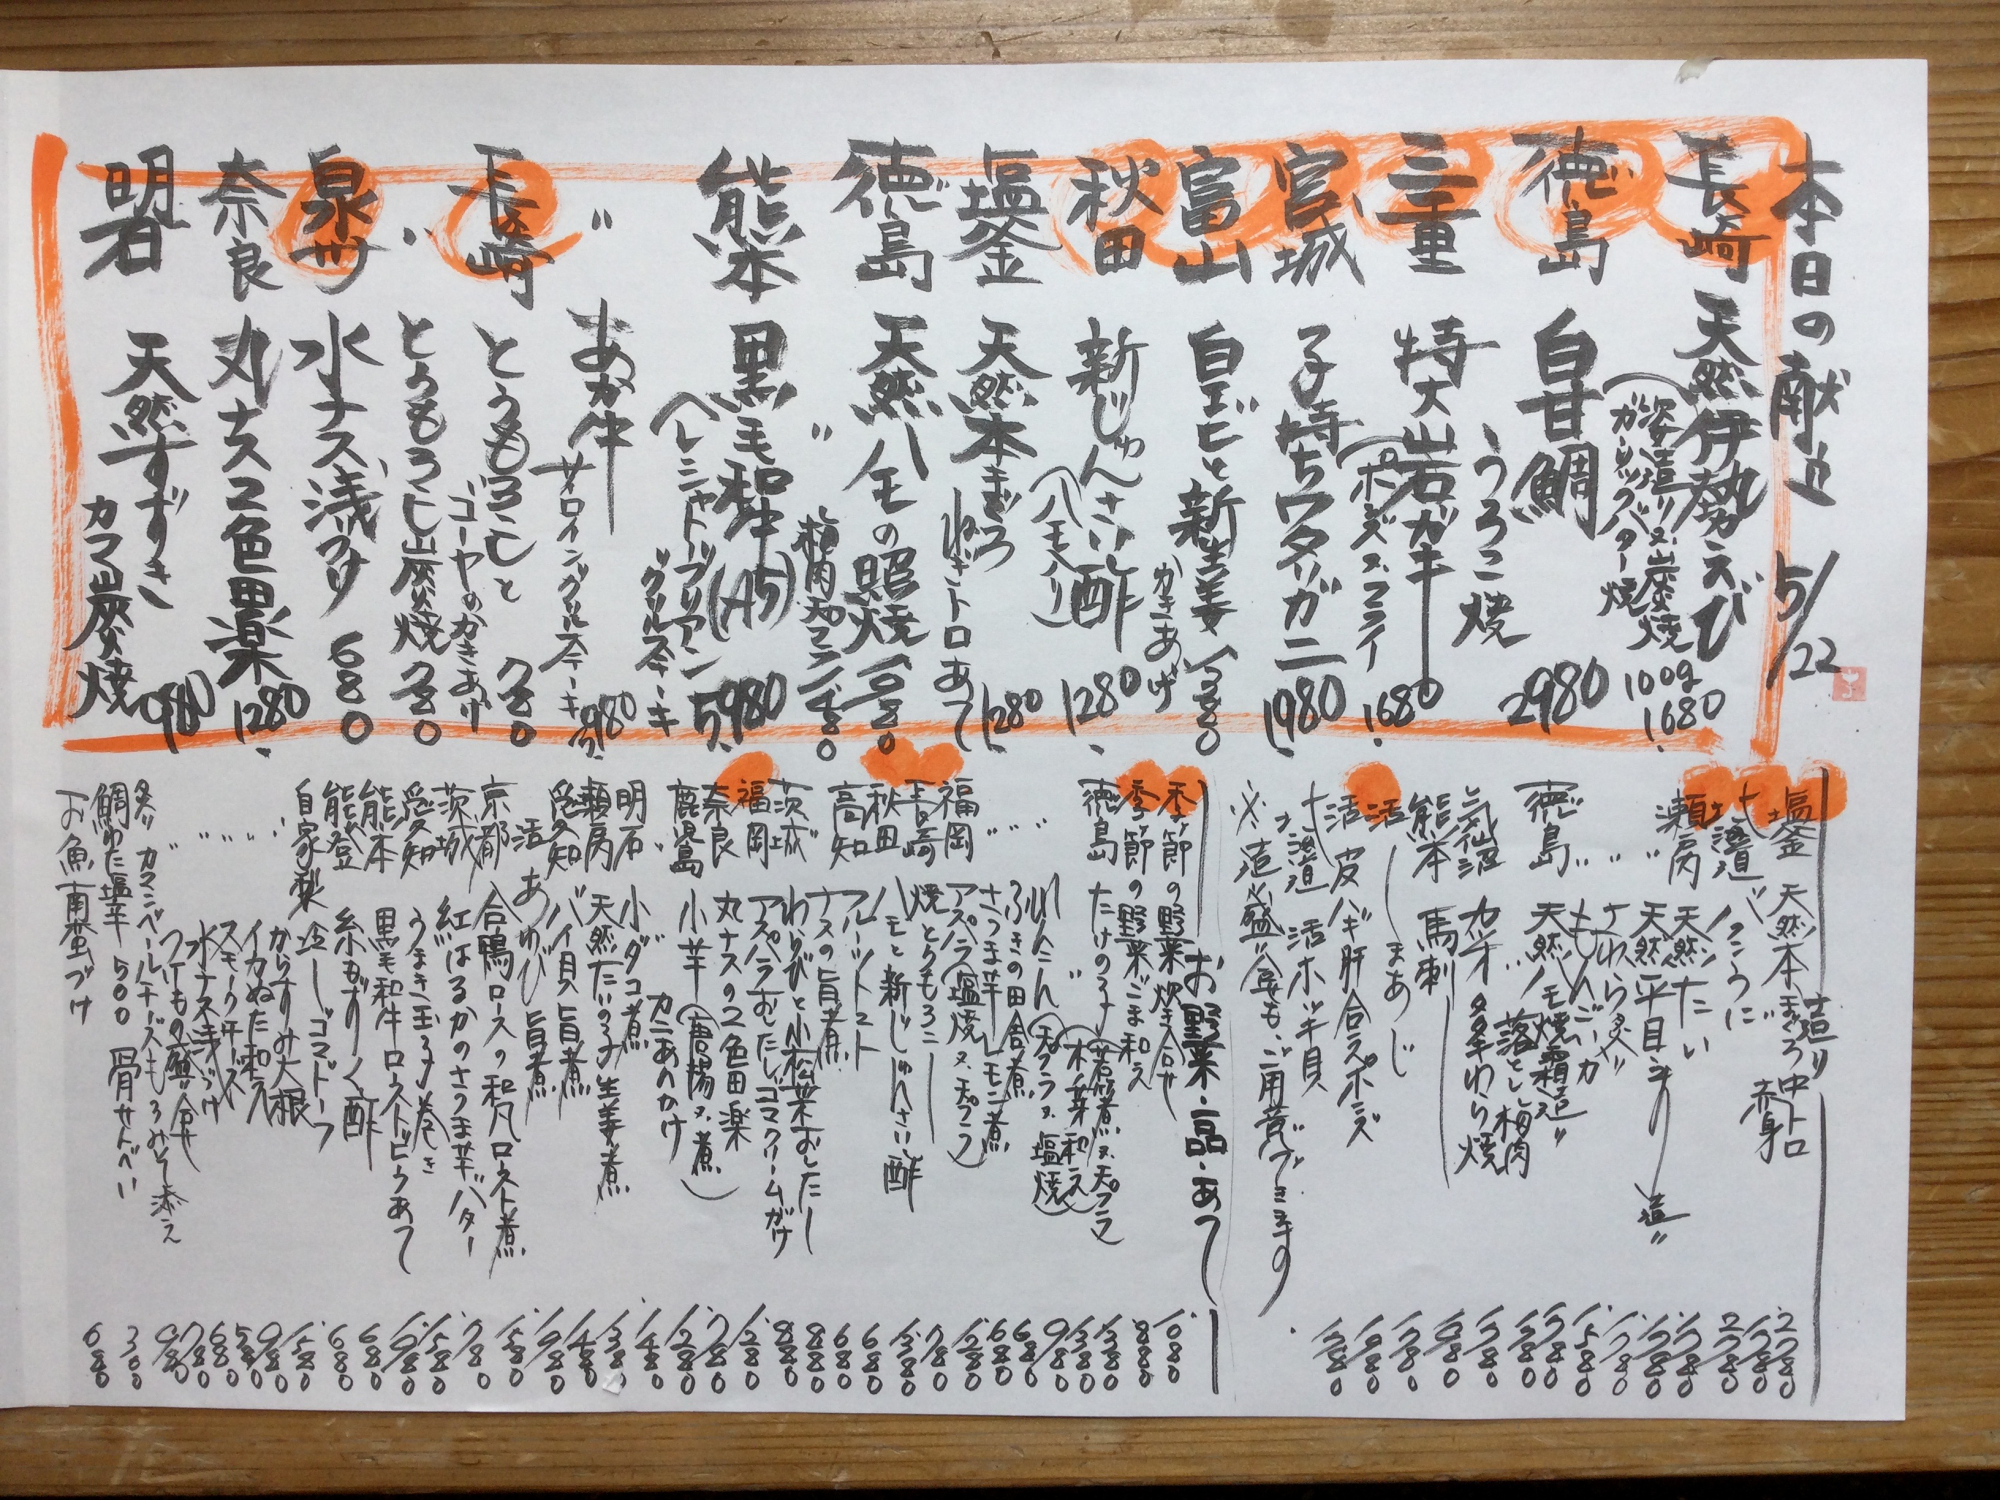 本日の献立 5/22
長崎 天然伊勢えび 100g 1680
(姿造り又は炭焼
ガーリックバター焼
徳島 白甘鯛 2980
うろこ焼
三重 特大岩ガキ 1680
(ポンズ又フライ
宮城 子持ちワタリガニ 1980
富山 白エビと新生姜 1380
かきあげ
秋田 新じゅんさい酢 1280
(ハモ入り)
塩釜 天然本まぐろ 1280
ねぎトロあて
徳島 天然ハモの照焼 1680
〃 梅肉
熊本 黒毛和牛(A5) 5980
(ヘレシャトーブリアン
グリルステーキ
〃 あか牛
サロイングリルステーキ
長崎 とうもろこしと 780
ゴーヤのかきあげ
〃 とうもろこし炭焼 780
泉州 水ナス浅づけ 680
奈良 丸ナス2色田楽 1280
明石 天然すずき 980
カマ炭焼
造り
塩釜 天然本まぐろ 中トロ 2780
赤身 1780
北海道 バフンうに 2780
瀬戸 天然たい 1780
〃 天然平目 造り 1780
〃 さわら炙り 1780
〃 もんごいか 1580
徳島 天然ハモ焼霜造り 1780
〃 落とし梅肉 1380
気仙沼 カツオ タタキわら焼 1780
熊本 馬刺し 1980
活 しまあじ 1780
活 皮ハギ肝合えポンズ 1980
北海道 活ホッキ貝 1380
※造り盛り合せも、ご用意できます。
お野菜・一品・あて
季節の野菜炊き合せ 1080
季節の野菜ごま和え 880
徳島 たけのこ(若筍煮又天プラ 1380
〃 (木の芽和え) 1380
れんこん(天プラ又塩焼) 980
〃 ふきの田舎煮 680
〃 さつま芋レモン煮 680
福岡 アスパラ(塩焼又天プラ) 1280
長崎 焼とうもろこし 780
秋田 ハモと新じゅんさい酢 1380
フルーツトマト 680
高知 ナスの旨煮 680
茨城 わらびと小松菜おしたし 880
福岡 アスパラおしたしゴマクリームがけ 880
奈良 丸ナスの2色田楽 1280
鹿児島 小芋(唐揚又煮) 780
〃 カニあんかけ 1280
明石 小ダコ煮 1480
瀬戸 天然たいの子生姜煮 1380
愛知 バイ貝旨煮 1480
活 あわび旨煮 1980
京都 合鴨ロースの和風ロースト煮 1580
茨城 紅はるかのさつま芋バター 780
愛知 うまき玉子巻き 1580
熊本 黒毛和牛ローストビーフあて 1980
能登 糸もずく酢 680
自家製 冷しゴマドーフ 680
〃 からすみ大根 1580
〃 イカぬた和え 980
〃 スモークチーズ 580
〃 水ナス浅づけ 680
〃 つけもの盛合せ 780
炙りカマンベールチーズもろみそ添え 980
鯛わた塩辛 500 骨せんべい 300
お魚南蛮づけ 680